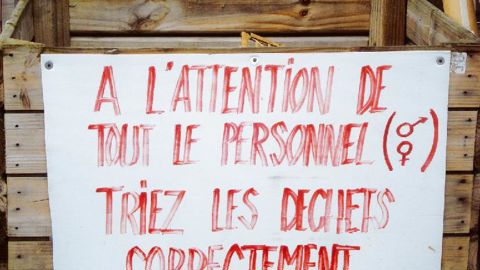 A L'ATTENTION DE
TOUT LE PERSONNEL (♂♀)
TRIEZ LES DECHETS
CORRECTEMENT